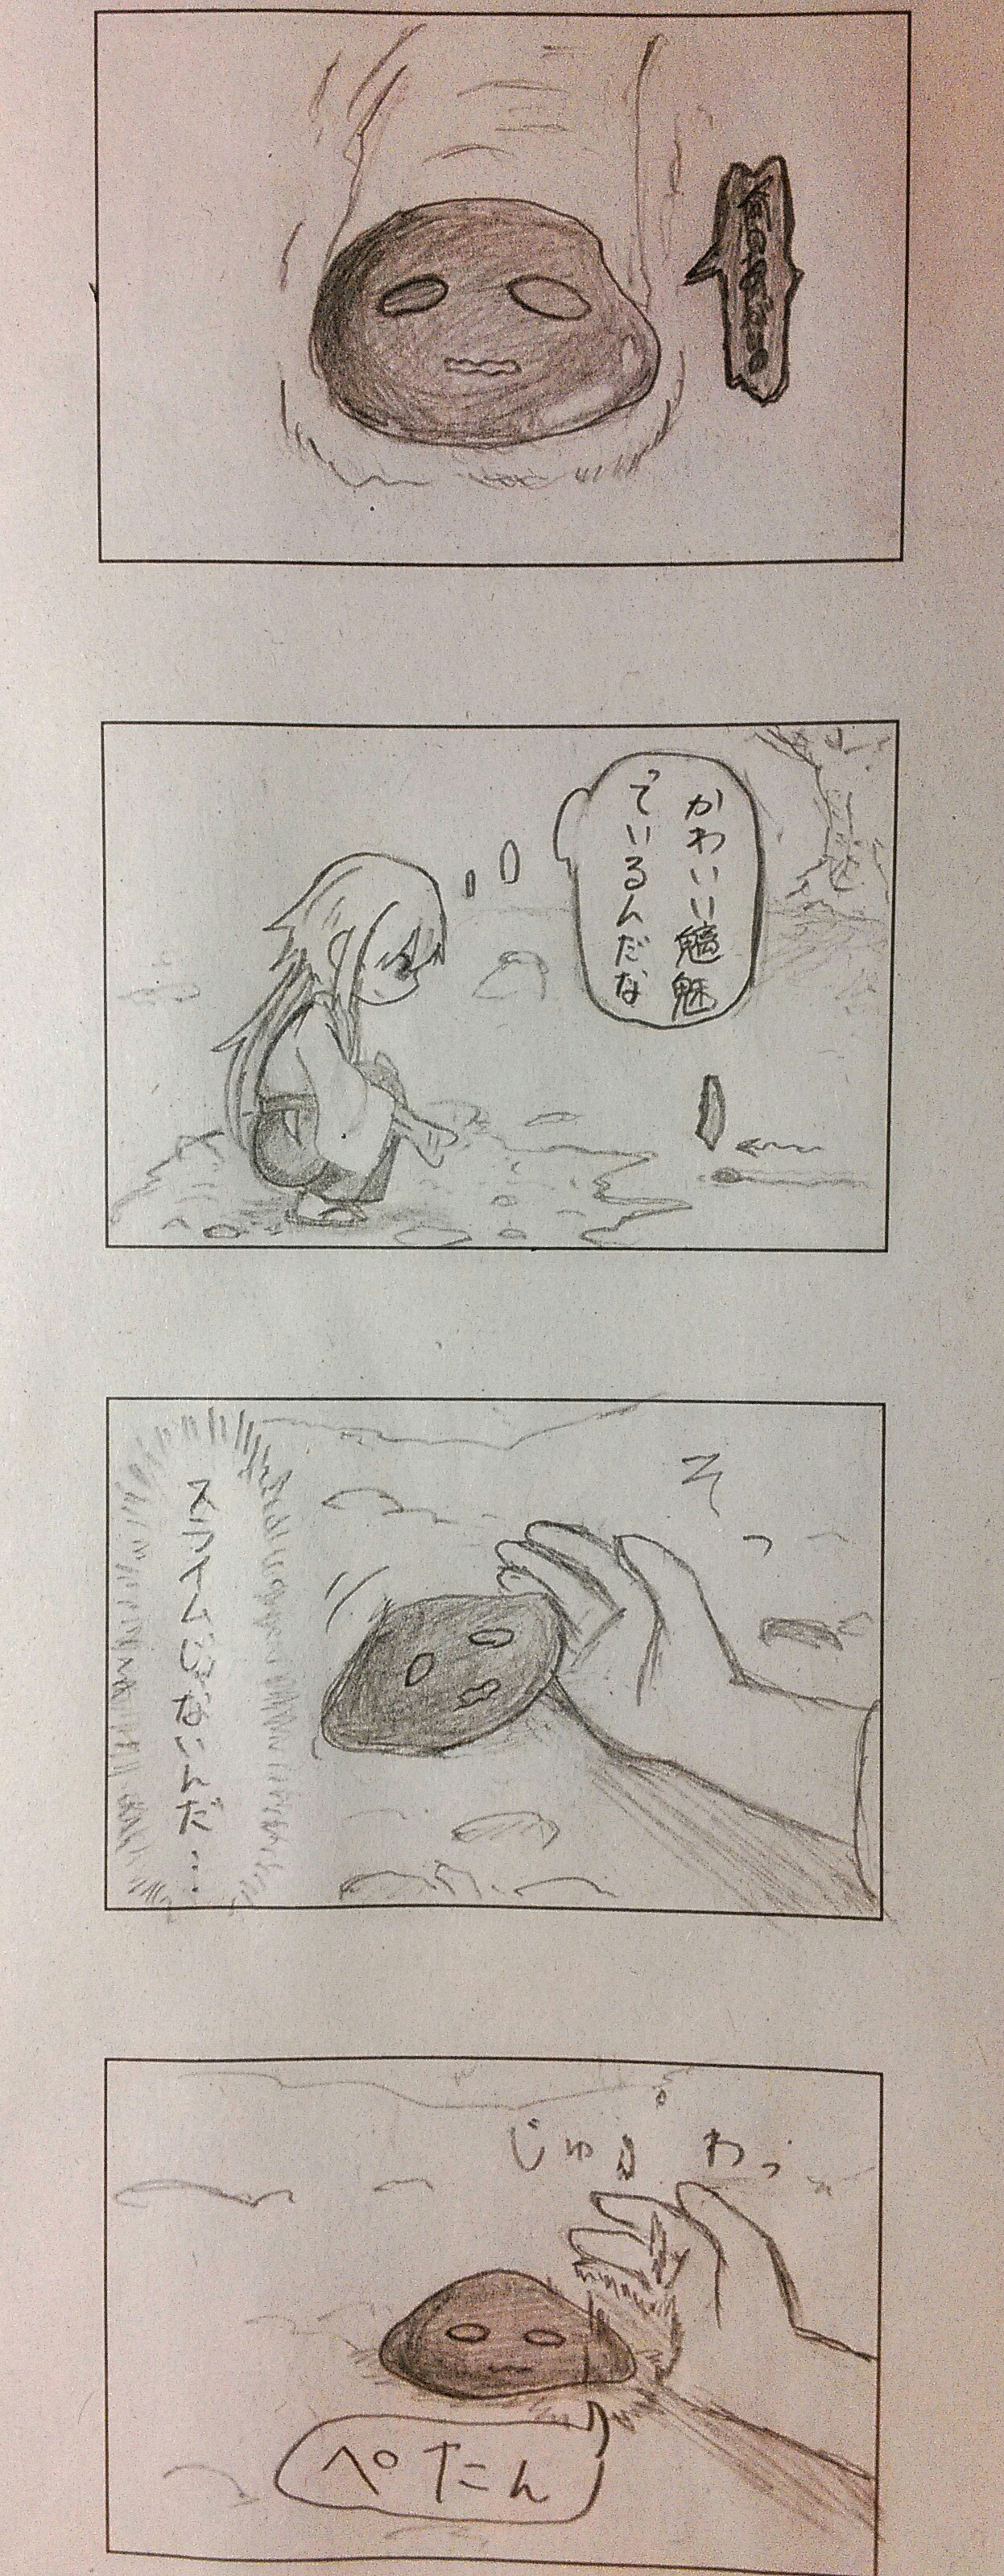 かわいい魑魅
ているんだな
そ
っ
スライムじゃないんだ…
じゅ
わっ
ぺたん